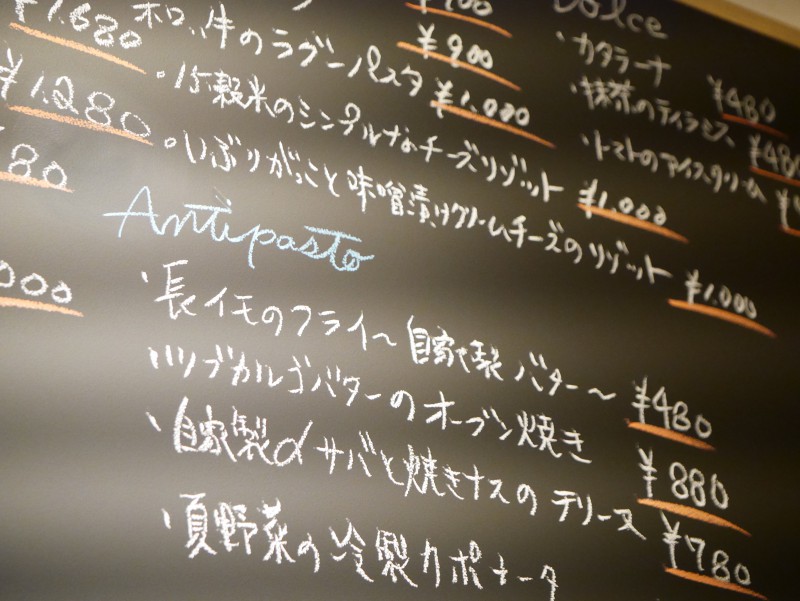 ¥1.680
¥1.280
80
000
ボロッ牛のラグーパスタ ¥900
・15穀米のシンプルなチーズリゾット ¥1.000
・いぶりがっこと味噌漬けクリームチーズのリゾット ¥1.000
¥1.000
Antipasto
・長イモのフライ〜自家製バター〜 ¥480
ツブカルゴバターのオーブン焼き ¥880
・自家製〆サバと焼きナスのテリーヌ ¥780
野菜の冷製カポナータ
Dolce
・カタラーナ ¥480
・抹茶のティラミス ¥480
・トマトのアイスクリーム ¥